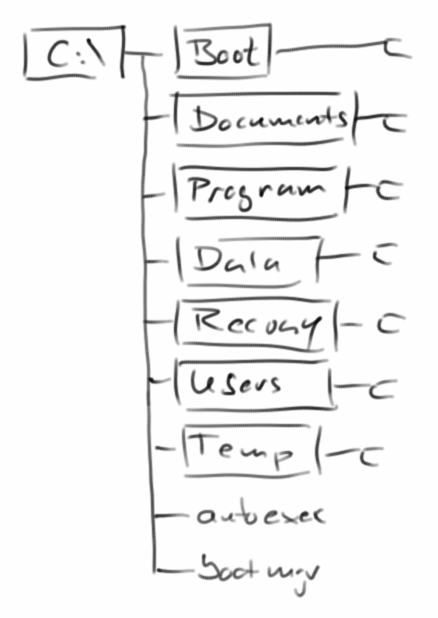 C:\
Boot
Documents
Program
Data
Recovy
Users
Temp
autoexec
bootmgr